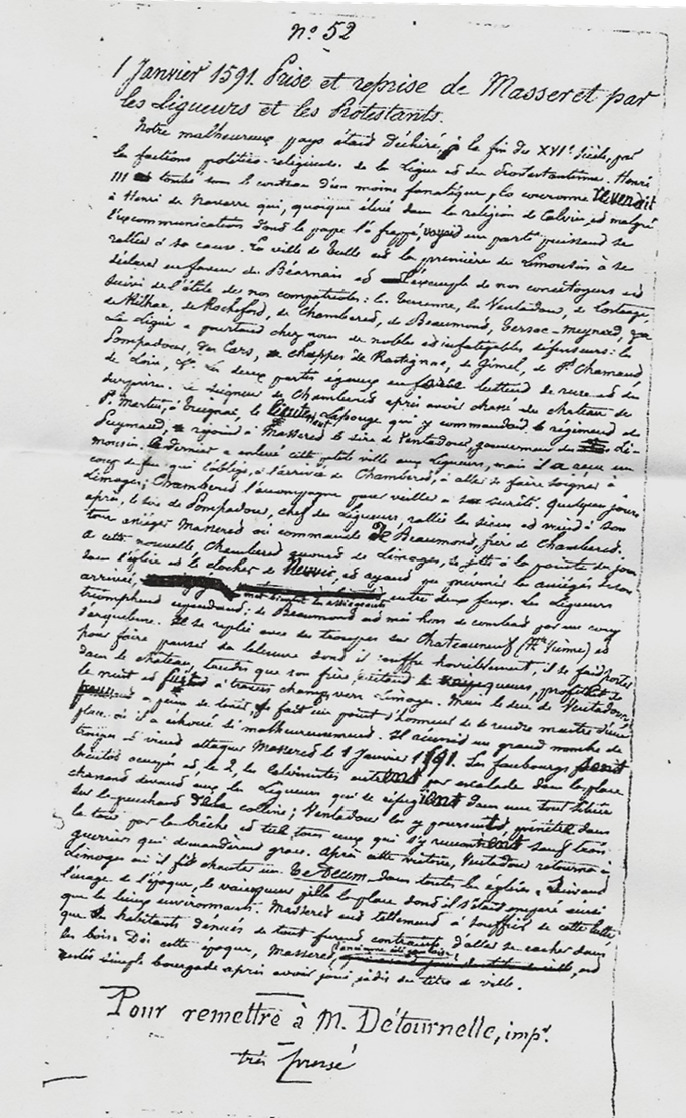 n° 52
1 Janvier 1591. Prise et reprise de Masseret par
les Ligueurs et les Protestants.
Notre malheureux pays était déchiré, à la fin du XVIe siècle, par
les factions politico-religieuses de la Ligue et du Protestantisme. Henri
III tombé sous le couteau d'un moine fanatique, la couronne revenait
à Henri de Navarre qui, quoique élevé dans la religion de Calvin, et malgré
l'excommunication dont le pape l'a frappé, voyait un parti puissant se
rallier à sa cause. La ville de Tulle est la première du Limousin à se
déclarer en faveur du Béarnais et l'exemple de nos concitoyens est
suivi de l'élite de nos compatriotes: les Turenne, les Ventadour, de Lostange,
de Rilhac, de Rochefort, de Chamberet, de Beaumont, Tersac-Meynard,
La Ligue a pourtant chez nous de nobles et infatigables défenseurs: les
Pompadour, des Cars, Chappes de Rastignac, de Gimel, de St Chamant
de Loin, Les deux partis égaux en force luttent de ruse et de
Le seigneur de Chamberet après avoir chassé du château de
St Martin, à Treignac, le lieutenant Lespouge qui y commandait le régiment de
rejoint à Masseret le sire de Ventadour, gouverneur du Li-
mousin. Ce dernier a enlevé cette petite ville aux Ligueurs, mais il a reçu un
coup de feu qui l'oblige, à l'arrivée de Chamberet, à aller se faire soigner à
Limoges; Chamberet l'accompagne pour veiller à sa sûreté. Quelques jours
après, le sire de Pompadour, chef des Ligueurs, rallie les siens et vient à son
tour assiéger Masseret où commande de Beaumont, frère de Chamberet.
A cette nouvelle, Chamberet accourt de Limoges, se jette à la pointe du jour
dans l'église et le clocher de et ayant pu prévenir les assiégés de son
arrivée, met bientôt les assiégeants entre deux feux. Les Ligueurs
triomphent cependant; de Beaumont est mis hors de combat par un coup
d'arquebuse. Il se replie avec ses troupes sur Chateauneuf (Hte Vienne) et
pour faire panser sa blessure dont il souffre horriblement, il se fait porter
dans le château, tandis que son frère, profite de
la nuit et fuit à travers champs vers Limoges. Mais le duc de Ventadour
a peine de se fait un point d'honneur de se rendre maître d'une
place où il a échoué si malheureusement. Il réunit un grand nombre de
troupes et vient attaquer Masseret le 1 Janvier 1591. Les faubourgs sont
bientôt occupés et, le 2, les calvinistes entrent par escalade dans la place
chassant devant eux les Ligueurs qui se réfugient dans une tour située
sur le penchant de la colline; Ventadour les y poursuit, pénètre dans
la tour par la brèche et tue tous ceux qui s'y rencontrent sauf trois
guerriers qui demandèrent grâce. Après cette victoire, Ventadour retourna à
Limoges où il fit chanter un Te Deum dans toutes les églises. Suivant
l'usage de l'époque, le vainqueur pilla la place dont il s'était emparé ainsi
que les lieux environnants. Masseret eut tellement à souffrir de cette lutte
que les habitants dénués de tout furent contraints d'aller se cacher dans
les bois. Dès cette époque, Masseret, est
restée simple bourgade après avoir joui jadis du titre de ville.
Pour remettre à M. Détournelle, impr.
très pressé